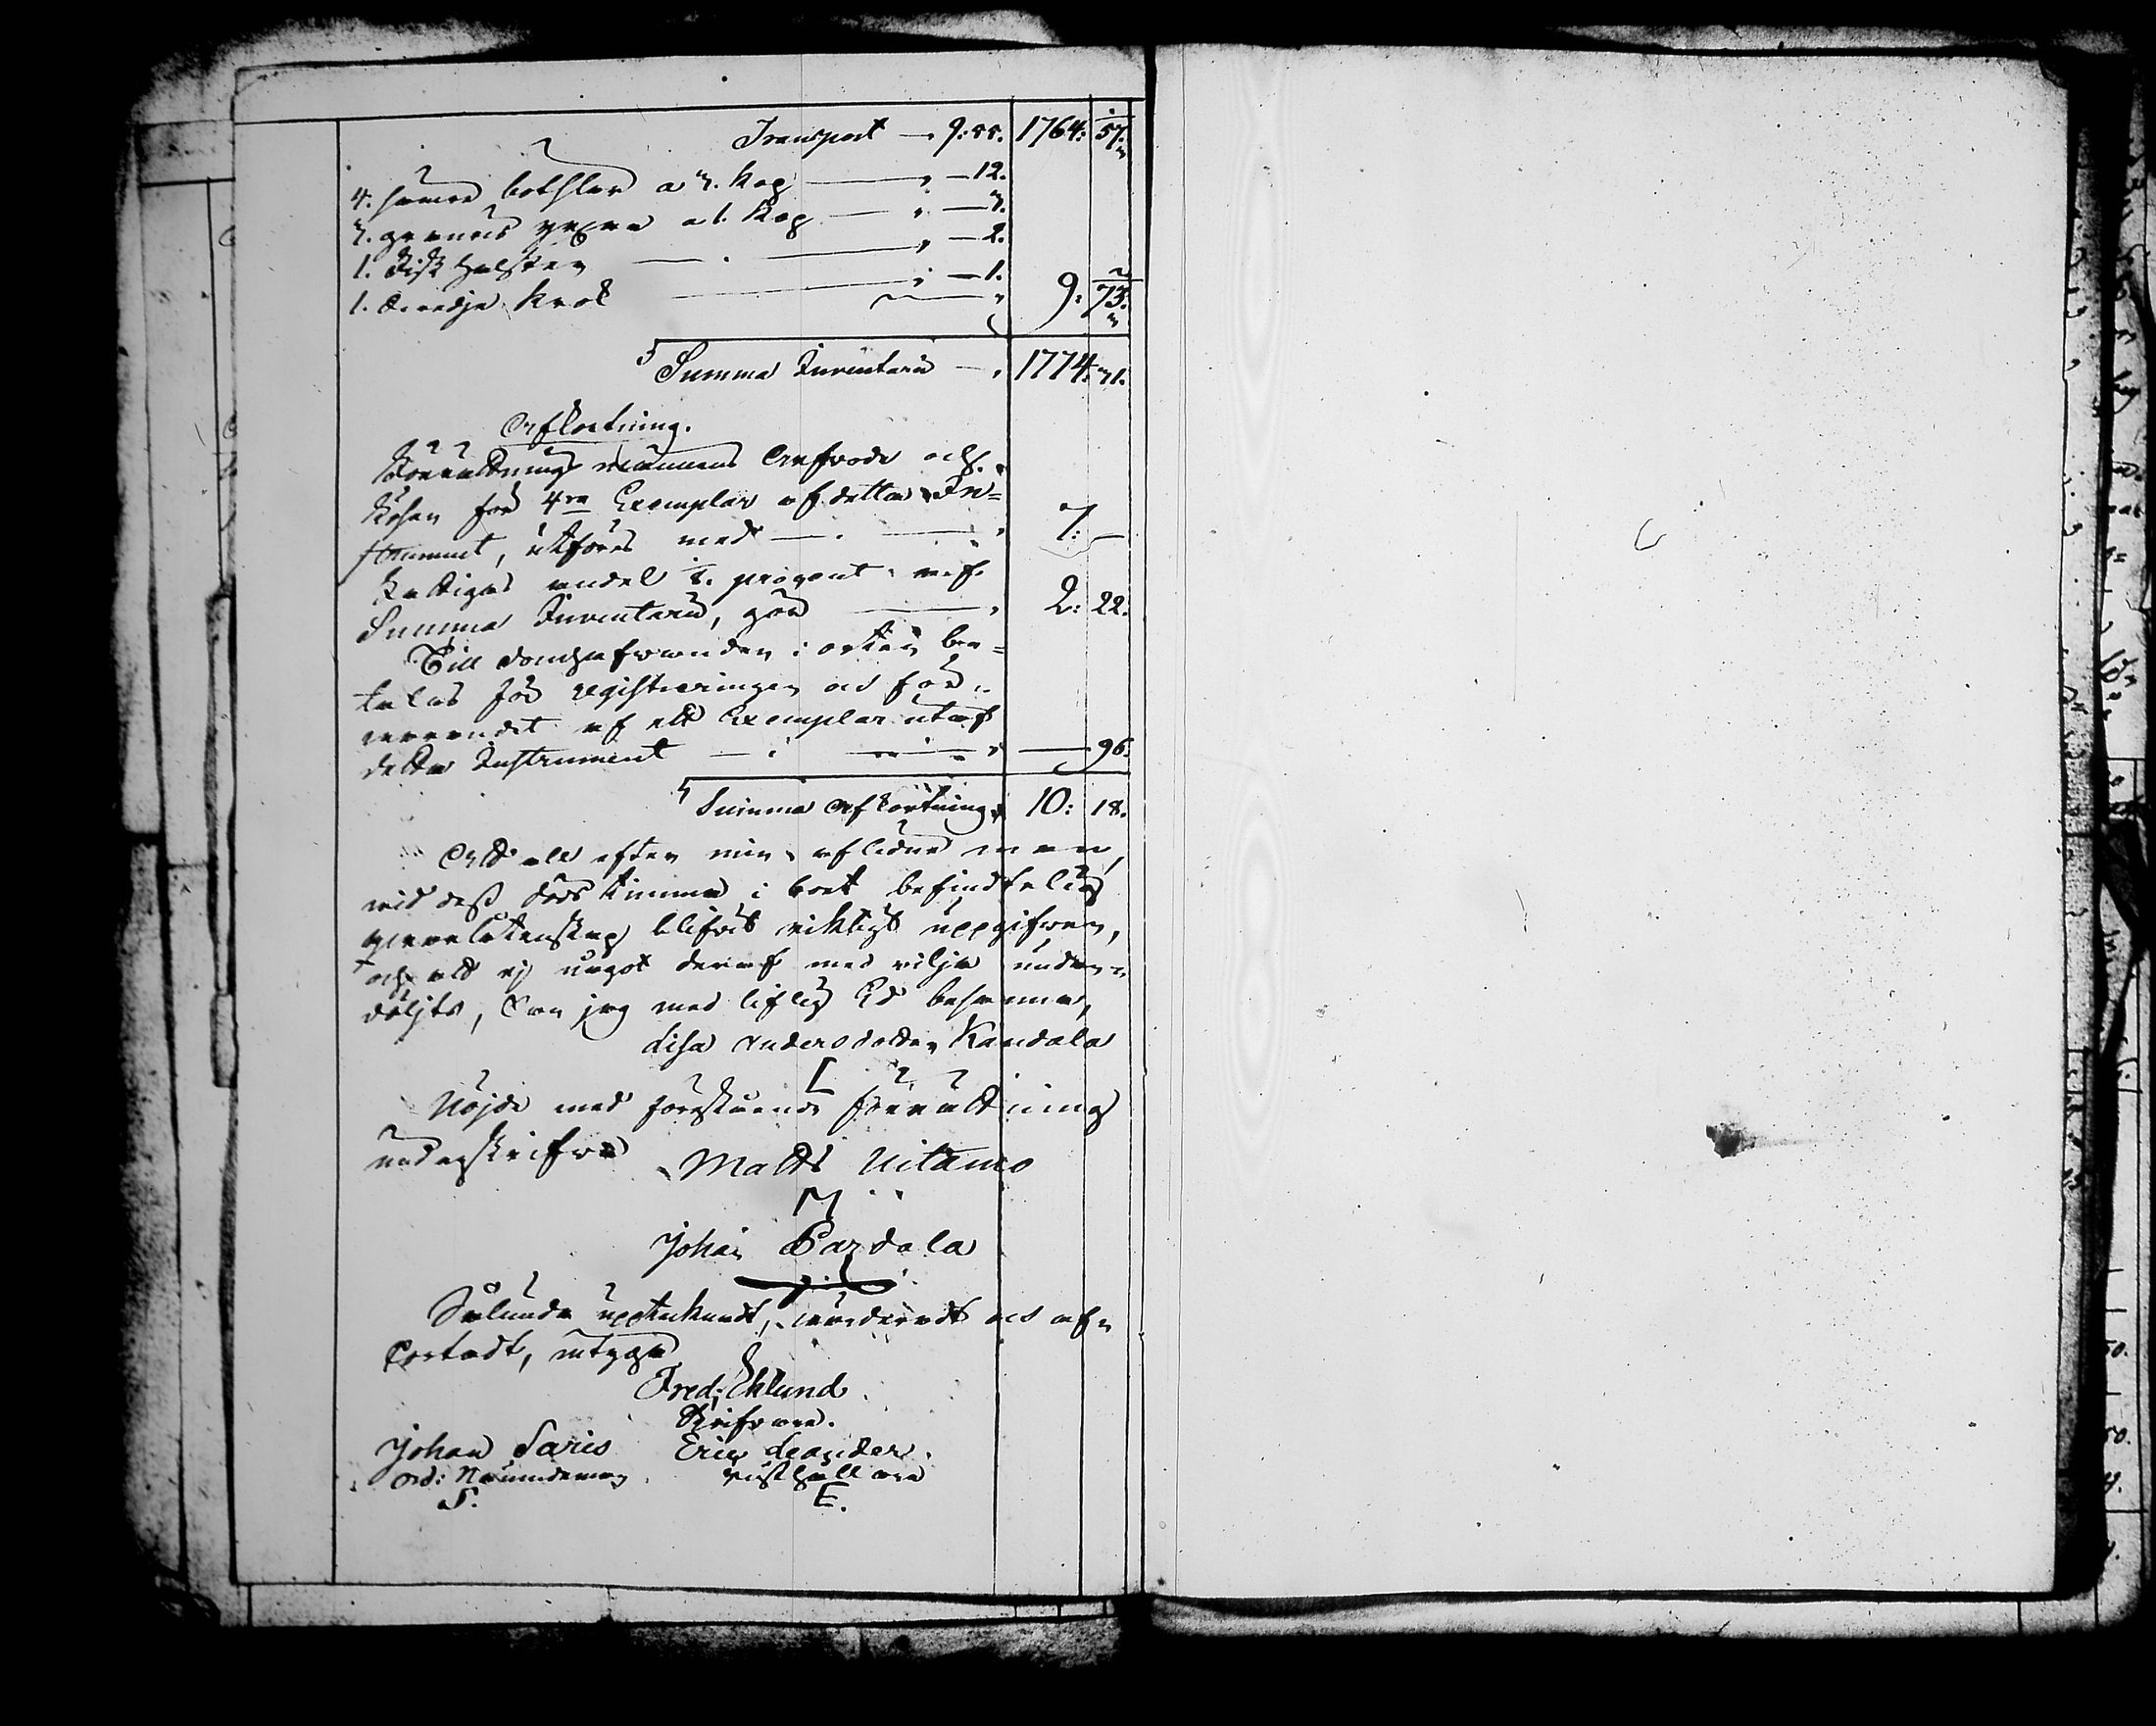 Transport — 9:55. 1764: 57.
4. botslar a 3. Kop — „ —12.
3. a 1. Kop — „ —3.
1. Fisk Halster — „ —2.
1. Krok — „ —1. 9: 73.
Summa Inventarii — „ 1774: 31.
Afkortning.
Förrättnings männens Arfvode och
lösen för 4ra Exemplar af detta In=
strument, utföres med — „ 7: —
Fattigas andel ⅛ procent af
Summa Inventarii, gör — „ 2: 22.
Till domhafvanden i orten be=
talas för registreringen och för=
varandet af ett Exemplar utaf
detta Instrument — „ — 96.
Summa Afkortning, 10: 18.
Att all efter min aflidne man,
vid dess döds timma i boet befindtelig
qvarlåtenskap blifvit riktigt uppgifven,
och att ej något deraf med vilja undan=
döljts, kan jag med liflig Ed besanna,
Lisa Andersdotter Kandola
Nöjde med förestående förrättning
underskrifva Matts Uitamo
Johan Pardola
Sålunda upptecknadt, värderadt och af=
kortadt, intyga
Fred: Eklund
Skrifvare.
Johan Saris Eric Leander
Ord: Nämndeman Rusthållare
S. E.